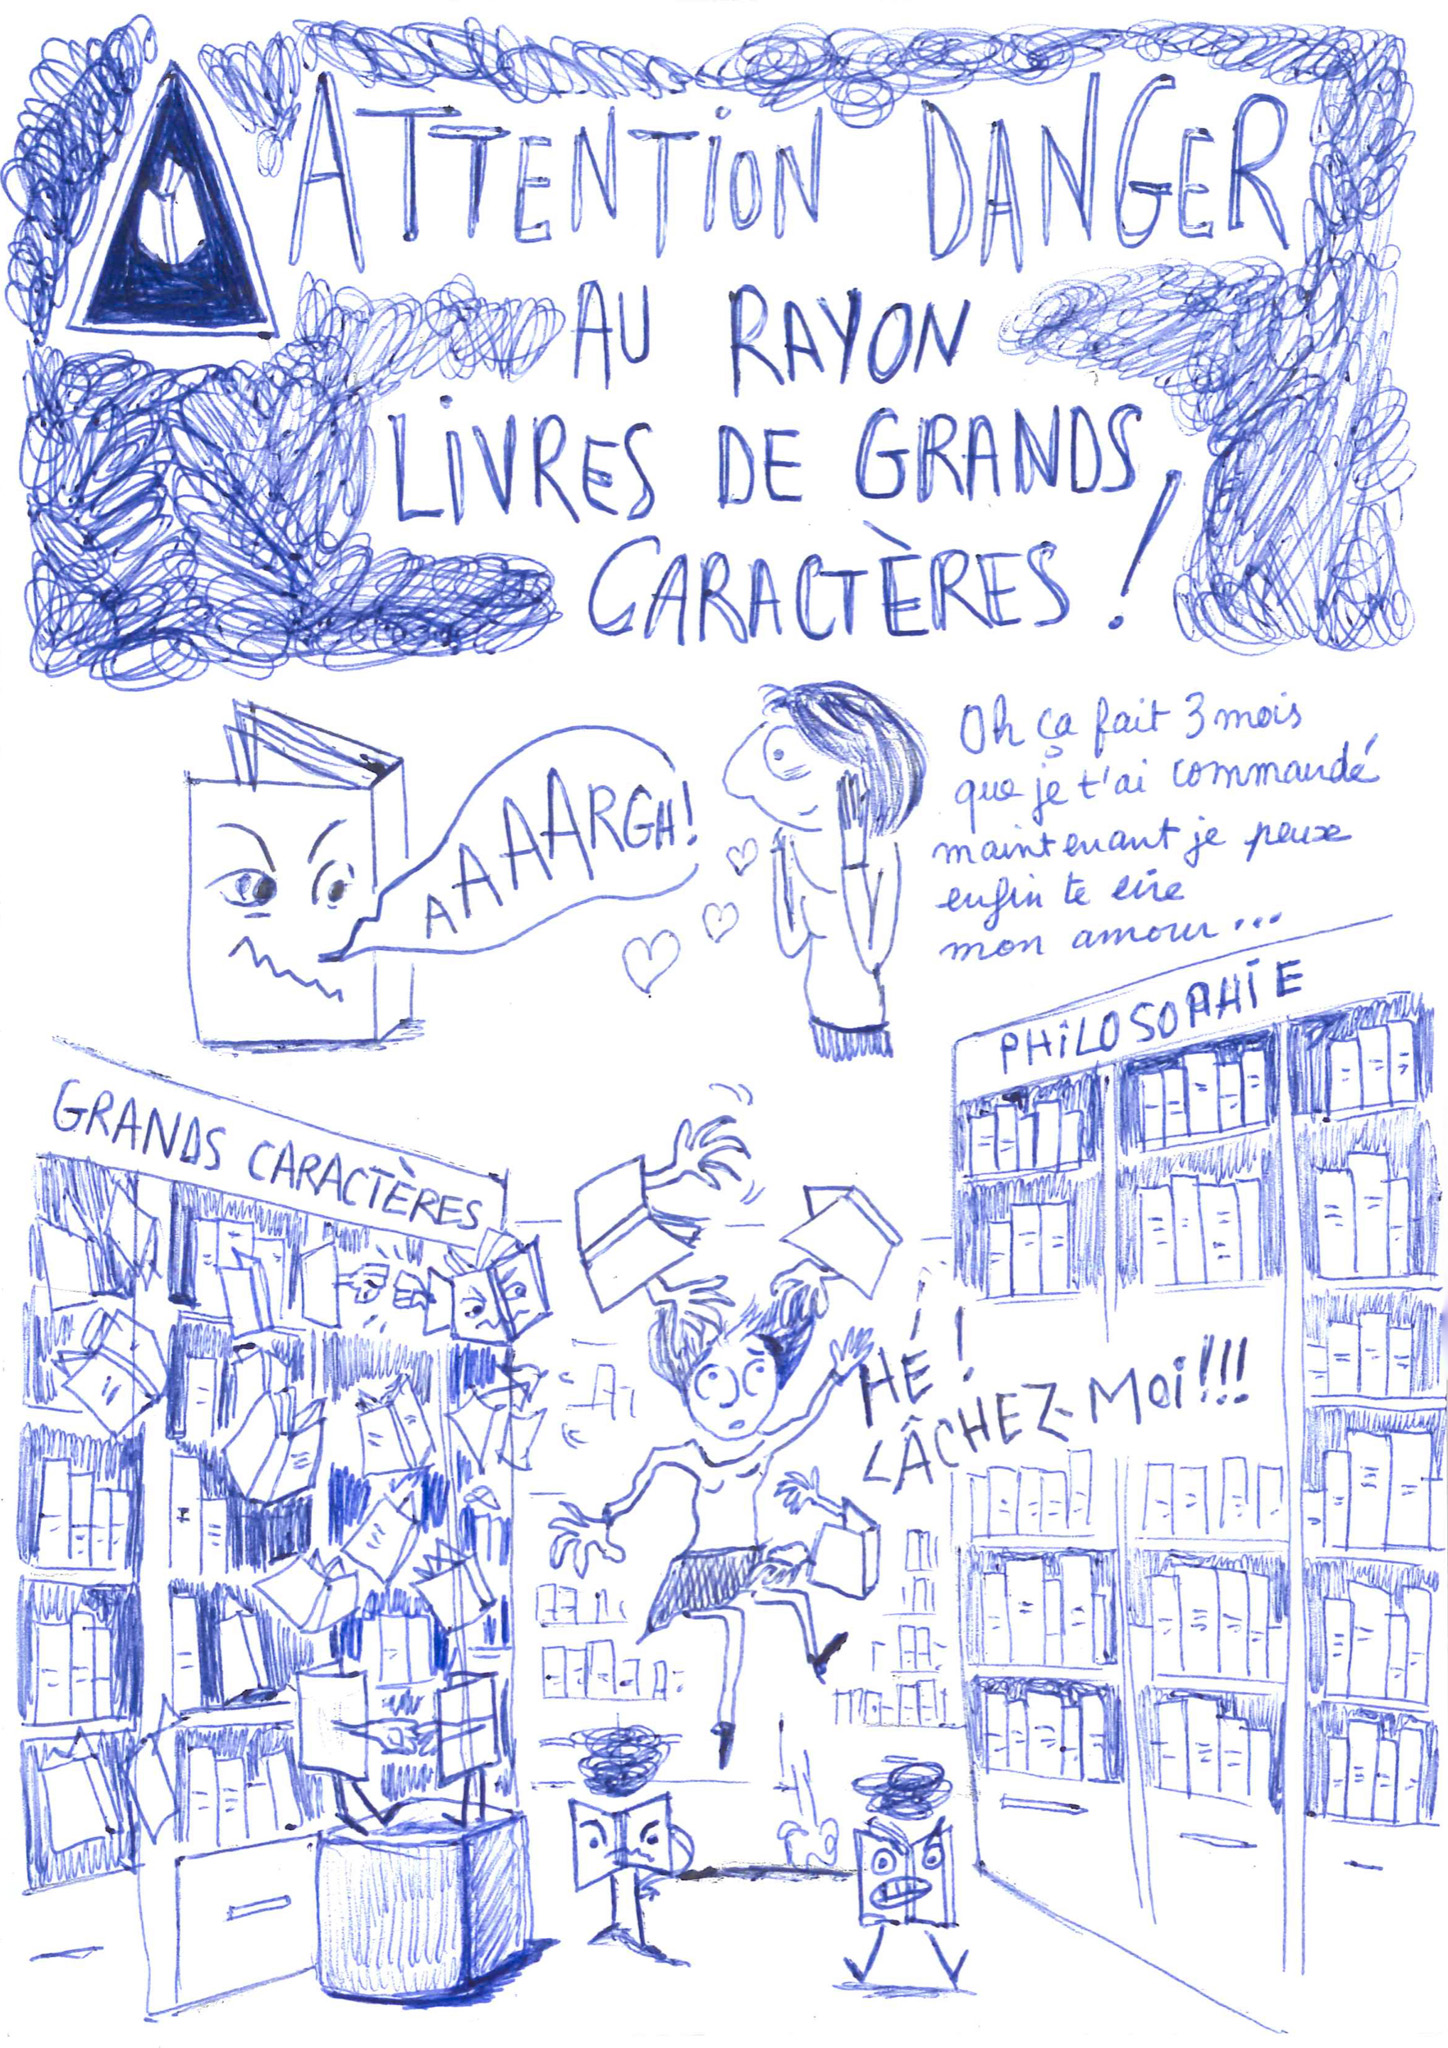 ATTENTION DANGER
AU RAYON
LIVRES DE GRANDS
CARACTÈRES !
AAAAARGH!
Oh ça fait 3 mois
que je t'ai commandé
maintenant je peux
enfin te lire
mon amour...
PHILOSOPHIE
GRANDS CARACTÈRES
HÉ !
LÂCHEZ-MOI !!!